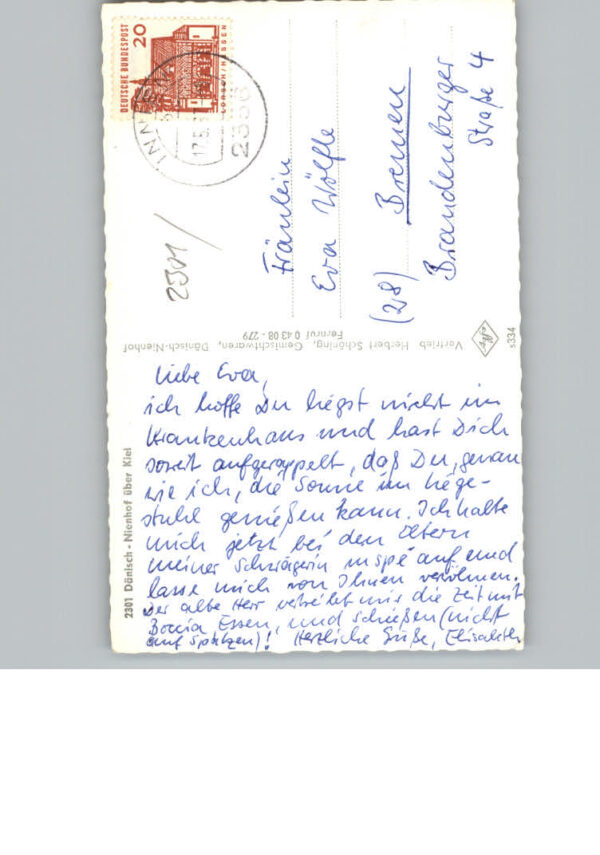 DEUTSCHE BUNDESPOST
20
LORSCH/HESSEN
17.5.
2301/
Fräulein
Eva Wölfle
(28) Bremen
Brandenburger
Straße 4
Vertrieb Herbert Schöning, Gemischtwaren, Dänisch-Nienhof
Fernruf 0 43 08 - 279
s334
2301 Dänisch-Nienhof über Kiel
Liebe Eva,
ich hoffe Du liegst nicht im
Krankenhaus und hast Dich
soweit aufgerappelt, daß Du, genau
wie ich, die Sonne im Liege-
stuhl genießen kann. Ich halte
mich jetzt bei den Eltern
meiner Schwägerin in spé auf und
lasse mich von Ihnen verwöhnen.
Der alte Herr vertreibt mir die Zeit mit
Boccia Essen, und schießen (nicht
auf Spatzen)! Herzliche Grüße, Elisabeth